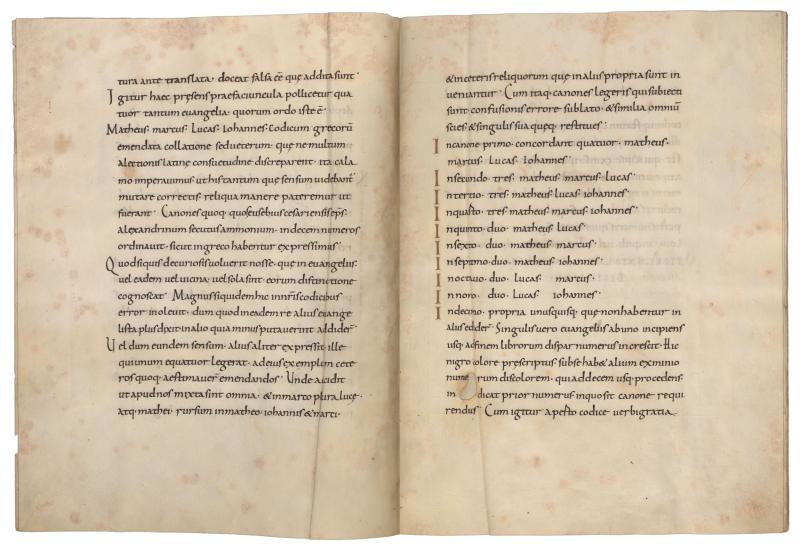 tura ante translata. doceat falsa cē quę addita sunt.
Igitur haec pręsens praefatiuncula pollicetur qua
tuor tantum euangelia. quorum ordo iste ē.
Matheus. marcus. Lucas. Iohannes. Codicum grecorū
emendata collatione sed ueterum. quę ne multum
a lectionis latinę consuetudine discreparent. ita cala
mo imperauimus ut his tantum quę sensum uidebant
mutare correctis reliqua manere pateremur ut
fuerant. Canones quoq. quos eusebius cesariensis eps.
alexandrinum secutus ammonium. in decem numeros
ordinauit. sicut in greco habentur expressimus.
Quod siquis de curiosis uoluerit nosse. quę in euangeliis.
uel eadem uel uicina. uel sola sint. eorum distinctione
cognoscat. Magnus siquidem hic in nr̄is codicibus
error inoleuit. dum quod in eadem re alius euange
lista plus dixit. in alio quia minus putauerint addider̄.
Vel dum eundem sensum. alius aliter expressit. ille
qui unum e quatuor legerat. ad eius exemplum cete
ros quoq. aestimauer̄ emendandos. Unde accidit
ut apud nos mixta sint omnia. & in marco plura lucę.
atq. mathei. rursum in matheo. iohannis & marci.
& in ceteris reliquorum quę in aliis propria sunt in
ueniantur. Cum itaq. canones legeris qui subiecti
sunt. confusionis errore sublato. & similia omniū
scies. & singulis sua quęq. restitues.
In canone primo. concordant quatuor. matheus.
marcus. Lucas. Iohannes.
In secundo. tres. matheus. marcus. Lucas.
In tertio. tres. matheus. Lucas. iohannes.
In quarto. tres. matheus. marcus. iohannes.
In quinto. duo. matheus. Lucas.
In sexto. duo. matheus. marcus.
In septimo. duo. matheus. iohannes.
In octauo. duo. Lucas. marcus.
In nono. duo. Lucas. iohannes.
In decimo. propria unusquisq. quę non habentur in
aliis edider̄. Singulis uero euangeliis ab uno incipiens
usq. ad finem librorum dispar numerus increscit. Hic
nigro colore prescriptus. sub se hab& alium ex minio
nume rum discolorem. qui ad decem usq. procedens.
in dicat prior numerus in quo sit canone requi
rendus. Cum igitur aperto codice uerbi gratia.